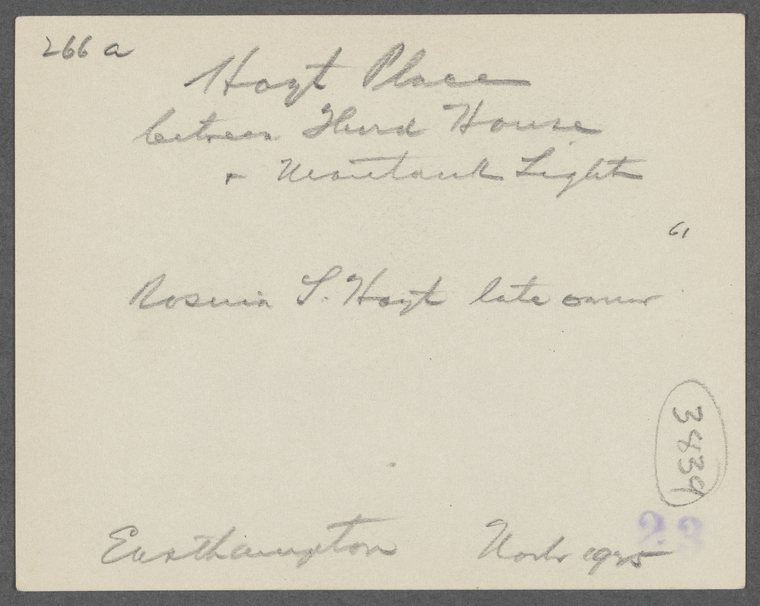 266 a
Hoyt Place
between Third House
+ Montauk Light
61
Rosina S. Hoyt late owner
3439
22
Easthampton Novbr 1925